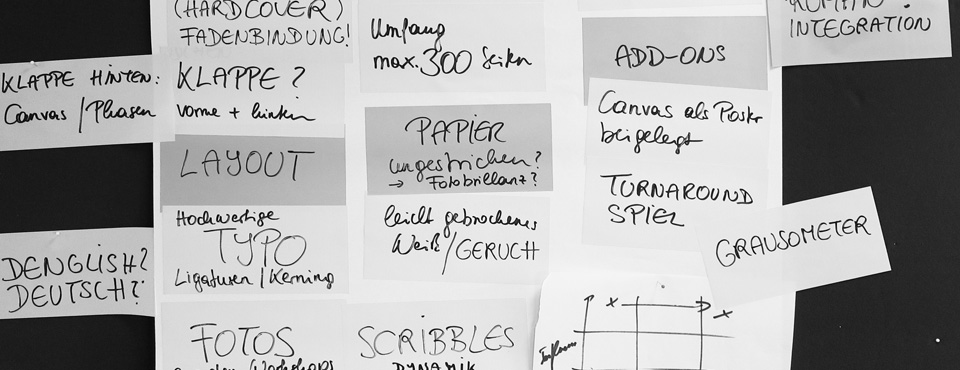 (HARDCOVER)
FADENBINDUNG!
KLAPPE HINTEN:
Canvas / Phasen
KLAPPE?
vorne + hinten
LAYOUT
Hochwertige
TYPO
Ligaturen / Kerning
DENGLISH?
DEUTSCH?
FOTOS
SCRIBBLES
DYNAMIK
Umfang
max. 300 Seiten
PAPIER
ungestrichen?
→ Fotobrillanz?
leicht gebrochenes
Weiß / GERUCH
ADD-ONS
Canvas als Poster
beigelegt
TURNAROUND
SPIEL
INTEGRATION
GRAUSOMETER
x
x